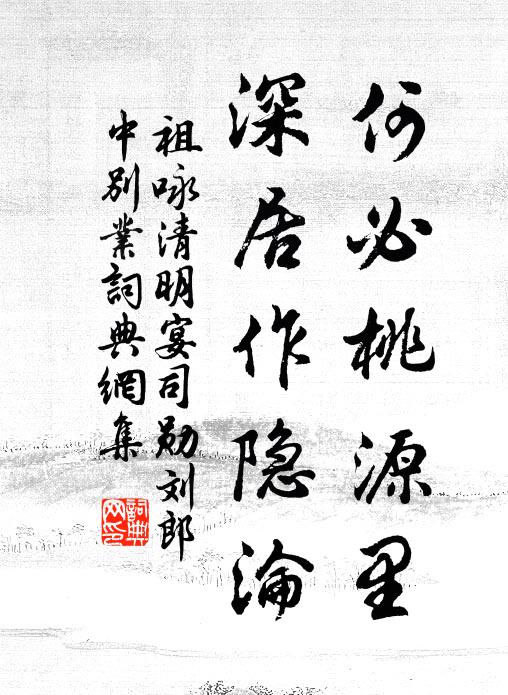 何必桃源里
深居作隐淪
祖咏清明宴司勋刘郎
中别業詞典網集
詞典
网印